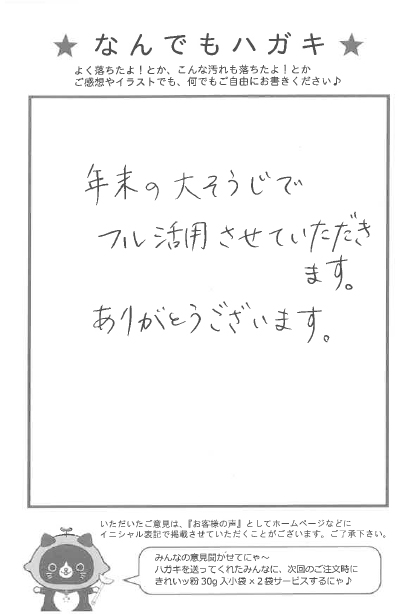 ★ なんでもハガキ ★
よく落ちたよ！とか、こんな汚れも落ちたよ！とか
ご感想やイラストでも、何でもご自由にお書きください♪
年末の大そうじで
フル活用させていただき
ます。
ありがとうございます。
いただいたご意見は、『お客様の声』としてホームページなどに
イニシャル表記で掲載させていただくことがございます。ご了承下さい。
みんなの意見聞かせてにゃ～
ハガキを送ってくれたみんなに、次回のご注文時に
きれいッ粉 30g 入小袋×2袋サービスするにゃ♪